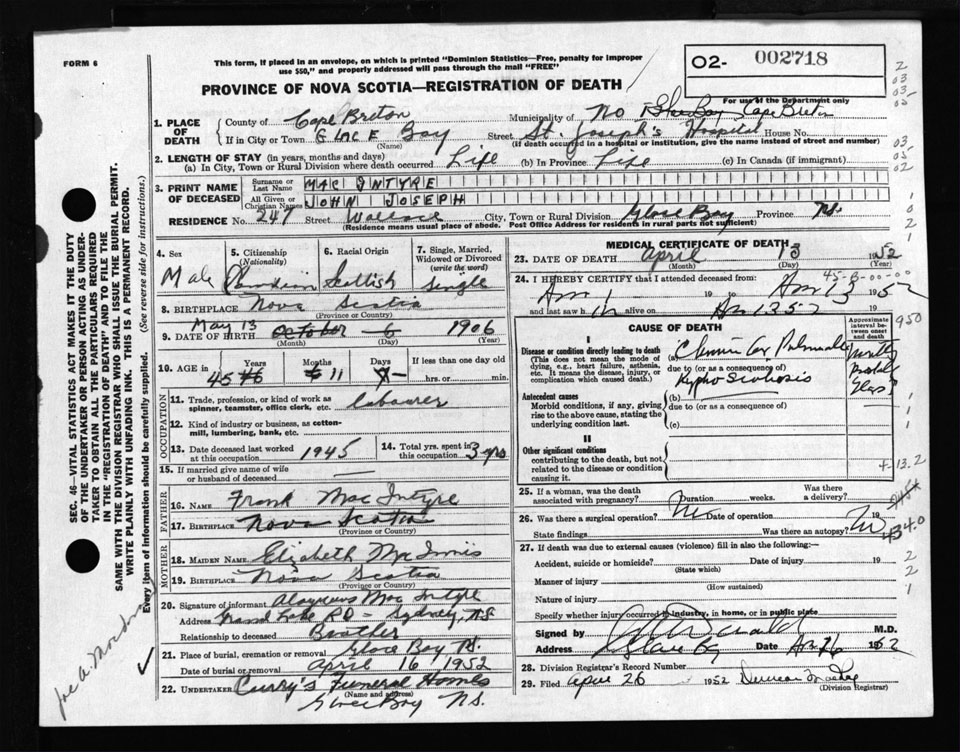 FORM 6
This form, if placed in an envelope, on which is printed "Dominion Statistics—Free, penalty for improper
use $50," and properly addressed will pass through the mail "FREE"
O2- 002718
PROVINCE OF NOVA SCOTIA—REGISTRATION OF DEATH
For use of the Department only
1. PLACE OF DEATH
County of Cape Breton Municipality of No Glace Bay Cape Breton
If in City or Town GLACE Bay (Name) Street St. Joseph's Hospital House No.
(If death occurred in a hospital or institution, give the name instead of street and number)
2. LENGTH OF STAY (in years, months and days)
(a) In City, Town or Rural Division where death occurred Life (b) In Province Life (c) In Canada (if immigrant)
3. PRINT NAME OF DECEASED
Surname or Last Name MAC INTYRE
All Given or Christian Names JOHN JOSEPH
RESIDENCE No. 247 Street Wallace City, Town or Rural Division Glace Bay Province N.S.
(Residence means usual place of abode. Post Office Address for residents in rural parts not sufficient)
4. Sex Male
5. Citizenship (Nationality) Canadian
6. Racial Origin Scottish
7. Single, Married, Widowed or Divorced (write the word) Single
8. BIRTHPLACE Nova Scotia
(Province or Country)
9. DATE OF BIRTH May 13 October 6 1906
(Month) (Day)
10. AGE in Years 45 Months 11 Days — If less than one day old hrs. or min.
OCCUPATION
11. Trade, profession, or kind of work as spinner, teamster, office clerk, etc. labourer
12. Kind of industry or business, as cotton-mill, lumbering, bank, etc.
13. Date deceased last worked at this occupation 1945
14. Total yrs. spent in this occupation 3 yrs
15. If married give name of wife or husband of deceased
FATHER
16. NAME Frank Mac Intyre
17. BIRTHPLACE Nova Scotia
(Province or Country)
MOTHER
18. MAIDEN NAME Elizabeth MacInnis
19. BIRTHPLACE Nova Scotia
(Province or Country)
20. Signature of informant Aloysius Mac Intyre
Address Grand Lake RD - Sydney, NS
Relationship to deceased Brother
21. Place of burial, cremation or removal Glace Bay N.S.
Date of burial or removal April 16, 1952
22. UNDERTAKER Curry's Funeral Homes
(Name and address)
Glace Bay N.S.
MEDICAL CERTIFICATE OF DEATH
23. DATE OF DEATH April 13 1952
(Month) (Day)
24. I HEREBY CERTIFY that I attended deceased from
19 to 1952
and last saw h alive on 19
CAUSE OF DEATH
Approximate interval between onset and death
I
Disease or condition directly leading to death
(This does not mean the mode of dying, e.g., heart failure, asthenia, etc. It means the disease, injury, or complication which caused death).
(a) Pulmonale
due to (or as a consequence of)
Antecedent causes
Morbid conditions, if any, giving rise to the above cause, stating the underlying condition last.
(b) Kypho Scoliosis
due to (or as a consequence of)
(c)
II
Other significant conditions
contributing to the death, but not related to the disease or condition causing it.
25. If a woman, was the death associated with pregnancy? Duration weeks. Was there a delivery?
26. Was there a surgical operation? No Date of operation 19
State findings Was there an autopsy? No
27. If death was due to external causes (violence) fill in also the following:—
Accident, suicide or homicide? Date of injury 19
(State which)
Manner of injury
(How sustained)
Nature of injury
Specify whether injury occurred in industry, in home, or in public place
Signed by M.D.
Address Glace Bay Date 1952
28. Division Registrar's Record Number
29. Filed April 26 1952
(Division Registrar)
SEC. 46—VITAL STATISTICS ACT MAKES IT THE DUTY
OF THE UNDERTAKER OR PERSON ACTING AS UNDER-
TAKER TO OBTAIN ALL THE PARTICULARS REQUIRED
IN THE "REGISTRATION OF DEATH" AND TO FILE THE
SAME WITH THE DIVISION REGISTRAR WHO SHALL ISSUE THE BURIAL PERMIT.
WRITE PLAINLY WITH UNFADING INK. THIS IS A PERMANENT RECORD.
Every item of information should be carefully supplied. (See reverse side for instructions.)